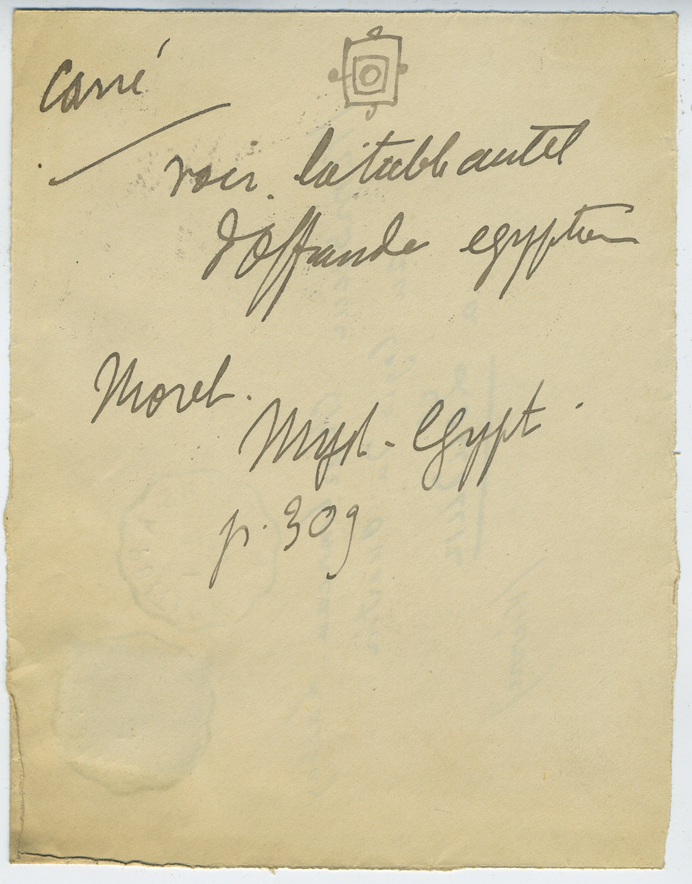 Carré
voir. la table autel
d'Offrande egyptien
Moret.
Myst. Egypt.
p. 309